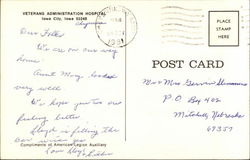 VETERANS ADMINISTRATION HOSPITAL
Iowa City, Iowa 52240
Dear Folks
We are on our way
home.
Aunt Mary looked
very well.
We hope you are
feeling better
Lloyd is filling the
Love Lloyd
Compliments of American Legion Auxiliary
1981
PLACE
STAMP
HERE
POST CARD
Mr & Mrs
P.O Box 402
Mitchell Nebraska
69357